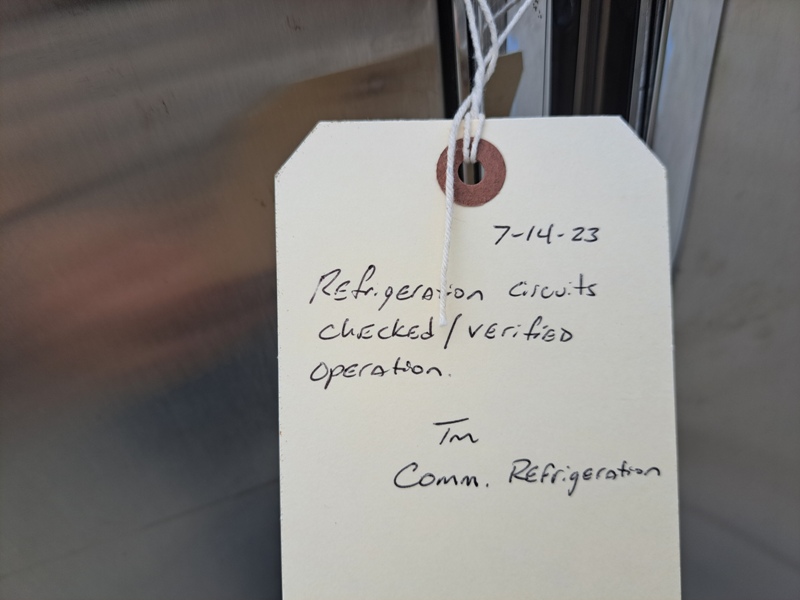 7-14-23
Refrigeration circuits
checked/verified
operation.
Tm
Comm. Refrigeration